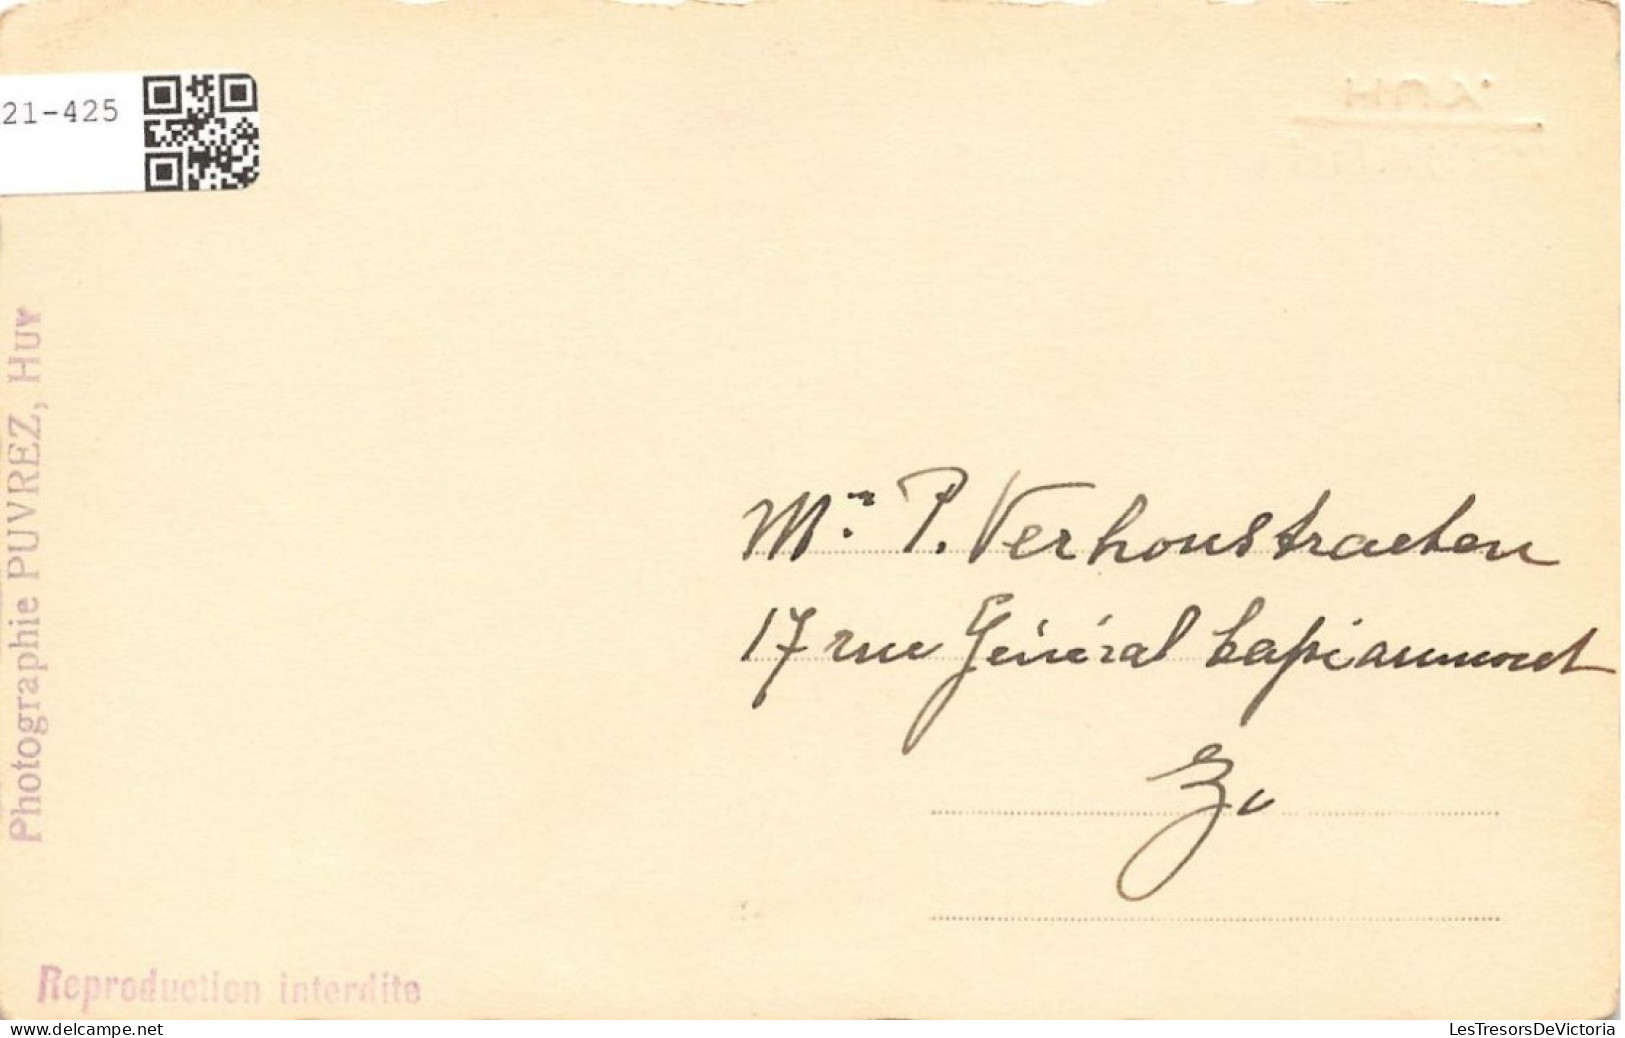 21-425
Photographie PUVREZ, HUY
Mr. P. Verhoustraeten
17 rue Général
Reproduction interdite
www.delcampe.net
LesTresorsDeVictoria